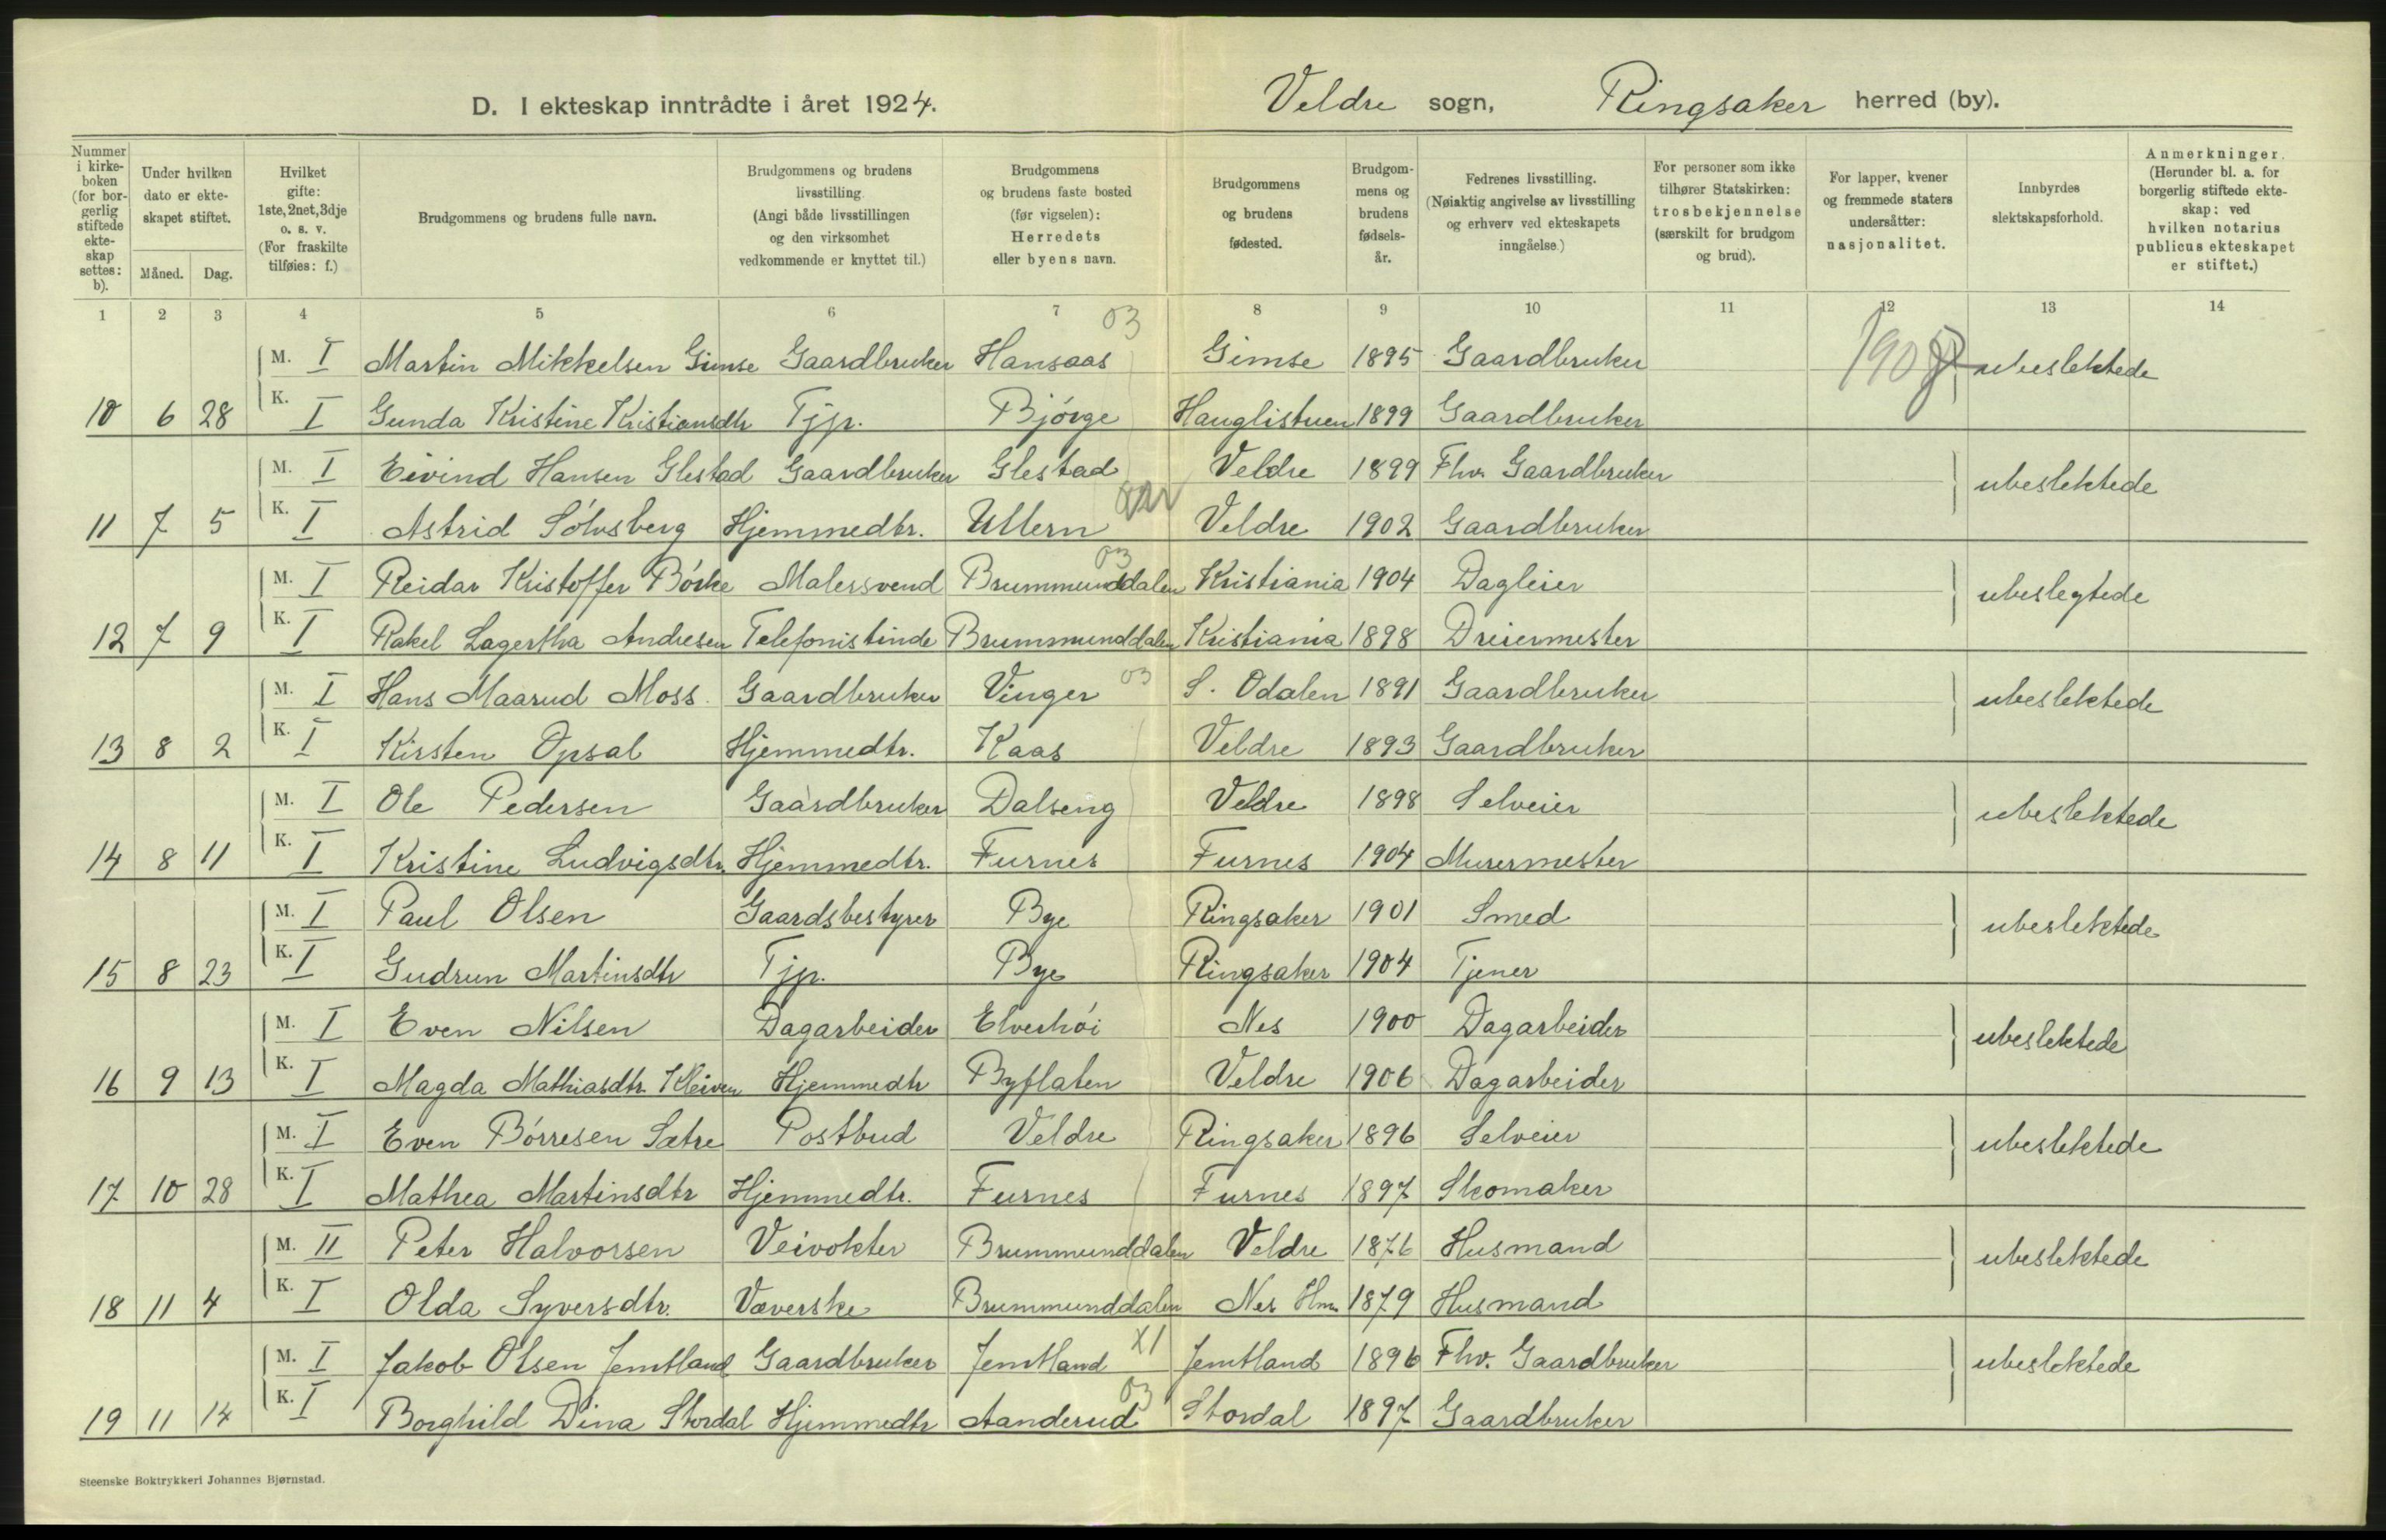 D. I ekteskap inntrådte i året 1924. Veldre sogn, Ringsaker herred (by).
Nummer i kirkeboken (for borgerlig stiftede ekteskap settes: b).
Under hvilken dato er ekteskapet stiftet.
Måned. Dag.
Hvilket gifte: 1ste, 2net, 3dje o. s. v. (For fraskilte tilføies: f.)
Brudgommens og brudens fulle navn.
Brudgommens og brudens livsstilling. (Angi både livsstillingen og den virksomhet vedkommende er knyttet til.)
Brudgommens og brudens faste bosted (før vigselen): Herredets eller byens navn.
Brudgommens og brudens fødested.
Brudgommens og brudens fødselsår.
Fedrenes livsstilling. (Nøiaktig angivelse av livsstilling og erhverv ved ekteskapets inngåelse.)
For personer som ikke tilhører Statskirken: trosbekjennelse (særskilt for brudgom og brud).
For lapper, kvener og fremmede staters undersåtter: nasjonalitet.
Innbyrdes slektskapsforhold.
Anmerkninger. (Herunder bl. a. for borgerlig stiftede ekteskap: ved hvilken notarius publicus ekteskapet er stiftet.)
1 2 3 4 5 6 7 8 9 10 11 12 13 14
03
M. I Martin Mikkelsen Gimse Gaardbruker Hansaas Gimse 1895 Gaardbruker ubeslektede
10 6 28 K. I Gunda Kristine Kristiansdtr Tjp. Bjørge Hauglistuen 1899 Gaardbruker
M. I Eivind Hansen Glestad Gaardbruker Glestad Veldre 1899 Fhv. Gaardbruker ubeslektede
11 7 5 K. I Astrid Sølvsberg Hjemmedtr. Ullern Veldre 1902 Gaardbruker
03
M. I Reidar Kristoffer Børke Malersvend Brummunddalen Kristiania 1904 Dagleier ubeslegtede
12 7 9 K. I Rakel Lagertha Andresen Telefonistinde Brummunddalen Kristiania 1898 Dreiermester
M. I Hans Maarud Moss. Gaardbruker Vinger 03 S. Odalen 1891 Gaardbruker ubeslektede
13 8 2 K. I Kirsten Opsal Hjemmedtr. Kaas Veldre 1893 Gaardbruker
M. I Ole Pedersen Gaardbruker Dalseng Veldre 1898 Selveier ubeslektede
14 8 11 K. I Kristine Ludvigsdtr. Hjemmedtr. Furnes Furnes 1904 Murermester
M. I Paul Olsen Gaardsbestyrer Bye Ringsaker 1901 Smed ubeslektede
15 8 23 K. I Gudrun Martinsdtr Tjp. Bye Ringsaker 1904 Tjener
M. I Even Nilsen Dagarbeider Elverhøi Nes 1900 Dagarbeider ubeslektede
16 9 13 K. I Magda Mathiasdtr. Kleiven Hjemmedtr Byflaten Veldre 1906 Dagarbeider
M. I Even Børresen Sætre Postbud Veldre Ringsaker 1896 Selveier ubeslektede
17 10 28 K. I Mathea Martinsdtr Hjemmedtr. Furnes Furnes 1897 Skomaker
M. II Peter Halvorsen Veivokter Brummunddalen Veldre 1876 Husmand ubeslektede
18 11 4 K. I Olda Syversdtr. Væverske Brummunddalen Nes Hm. 1879 Husmand
M. I Jakob Olsen Jemtland Gaardbruker Jemtland XI Jemtland 1896 Fhv. Gaardbruker ubeslektede
03
19 11 14 K. I Borghild Dina Stordal Hjemmedtr Aanderud Stordal 1897 Gaardbruker
Steenske Boktrykkeri Johannes Bjørnstad.